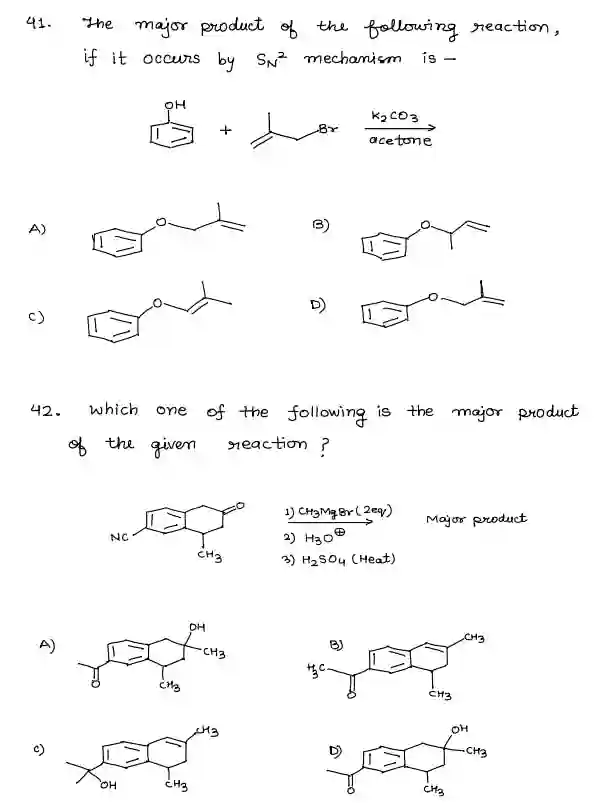 41. The major product of the following reaction,
if it occurs by SN2 mechanism is –
OH
+
Br
K2CO3
acetone
A)
O
B)
O
C)
O
D)
O
42. Which one of the following is the major product
of the given reaction ?
NC
O
CH3
1) CH3MgBr (2eq)
2) H3O⊕
3) H2SO4 (Heat)
Major product
A)
OH
CH3
O
CH3
B)
H3C
O
CH3
CH3
C)
CH3
OH
CH3
D)
OH
CH3
O
CH3